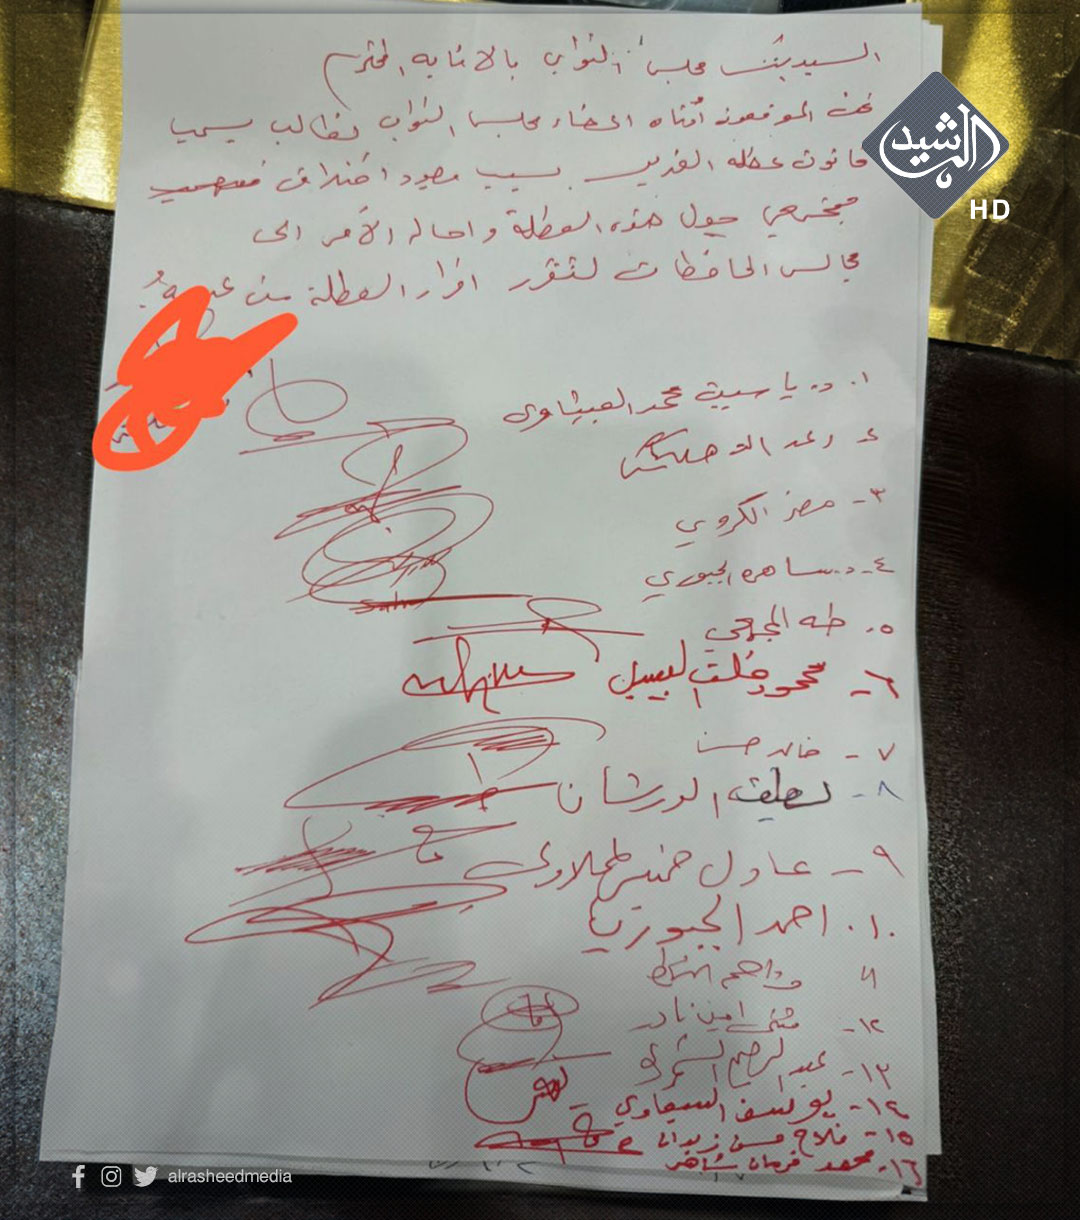 السيد رئيس مجلس النواب بالانابه المحترم
نحن الموقعون أدناه اعضاء مجلس النواب نطالب بسحب
قانون عطله الغدير بسبب وجود اختلاف
مجتمعي حول هذه العطلة واحالة الأمر الى
مجالس المحافظات لتقرر اقرار العطلة من عدمه
١. د. ياسين محمد العيثاوي
٢ رعد الدهلكي
٣- مضر الكروي
٤- د. ساهره الجبوري
٥. طه المجمعي
٦- محمود خلف
٧- خالد
٨- لطيف الورشان
٩- عادل خميس المحلاوي
١٠. احمد الجبوري
١١
١٢- مثنى امين نادر
١٣- عبد الرحيم الشمري
١٤- يوسف السبعاوي
١٥- فلاح حسن زيدان
١٦- محمد فرمان شاهر
الرشيد
HD
alrasheedmedia